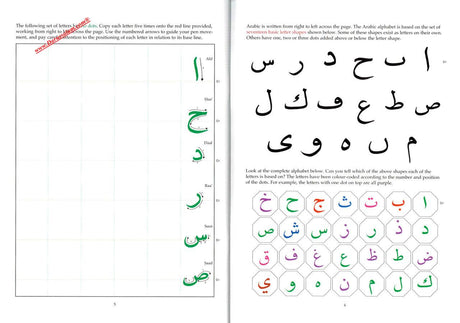 The following set of letters has no dots. Copy each letter five times onto the red line provided,
working from right to left across the page. Use the numbered arrows to guide your pen move-
ment, and pay careful attention to the positioning of each letter in relation to its base line.
Alif
ا
Haa'
ح
Daal
د
Raa'
ر
Seen
س
Saad
ص
5
Arabic is written from right to left across the page. The Arabic alphabet is based on the set of
seventeen basic letter shapes shown below. Some of these shapes exist as letters on their own.
Others have one, two or three dots added above or below the letter shape.
ا ٮ ح د ر س
ص ط ع ڡ ك ل
م ں ه و ى
Look at the complete alphabet below. Can you tell which of the above shapes each of the
letters is based on? The letters have been colour-coded according to the number and position
of the dots. For example, the letters with one dot on top are all purple.
ا ب ت ث ج ح خ
د ذ ر ز س ش ص
ض ط ظ ع غ ف ق
ك ل م ن ه و ي
6